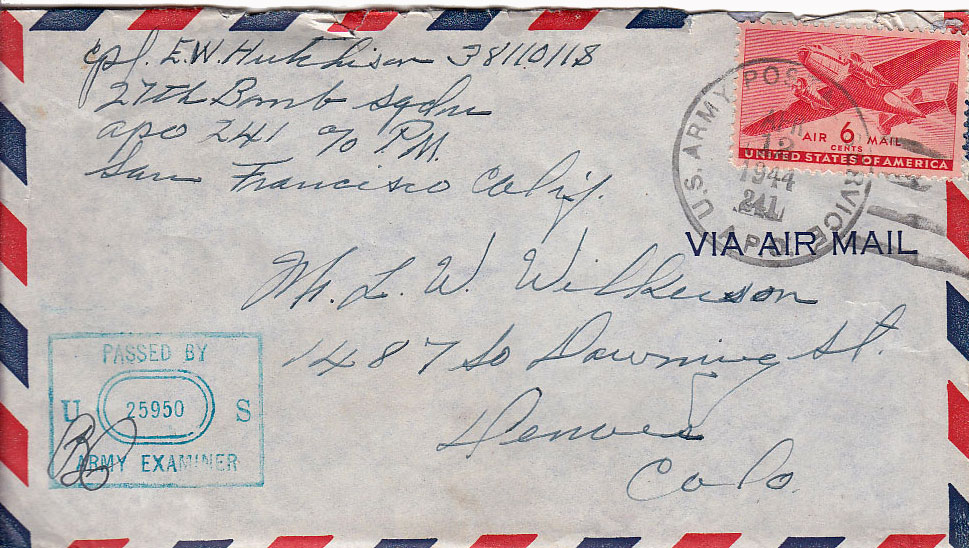 Cpl. E.W. Hutchison 38110118
27th Bomb Sqdn
APO 241 c/o P.M.
San Francisco Calif.
U.S. ARMY POSTAL SERVICE
APR
12
1944
241
A.P.O.
AIR 6 MAIL
CENTS
UNITED STATES OF AMERICA
VIA AIR MAIL
Mr. L. W. Wilkerson
1487 So Downing St.
Denver
Colo.
PASSED BY
U 25950 S
ARMY EXAMINER